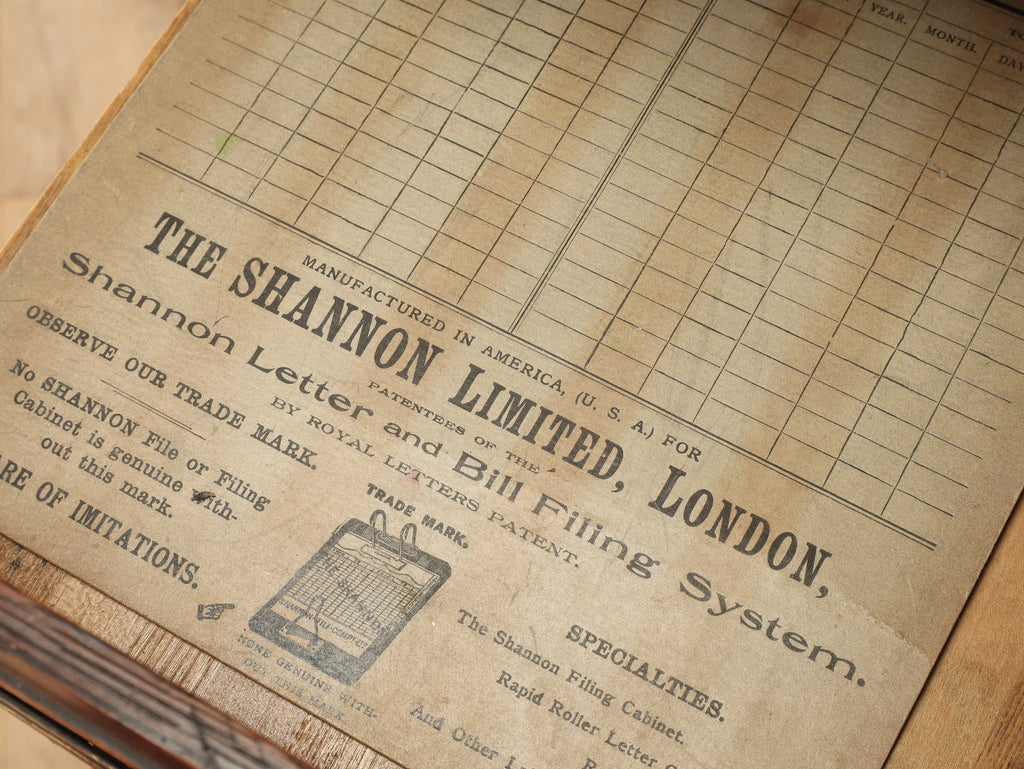 YEAR.
MONTH.
MANUFACTURED IN AMERICA, (U. S. A.) FOR
THE SHANNON LIMITED, LONDON,
PATENTEES OF THE
Shannon Letter and Bill Filing System.
BY ROYAL LETTERS PATENT.
OBSERVE OUR TRADE MARK.
No SHANNON File or Filing
Cabinet is genuine with-
out this mark.
OF IMITATIONS.
TRADE MARK.
NONE GENUINE WITH-
OUT THIS MARK
SPECIALTIES.
The Shannon Filing Cabinet.
Rapid Roller Letter
And Other